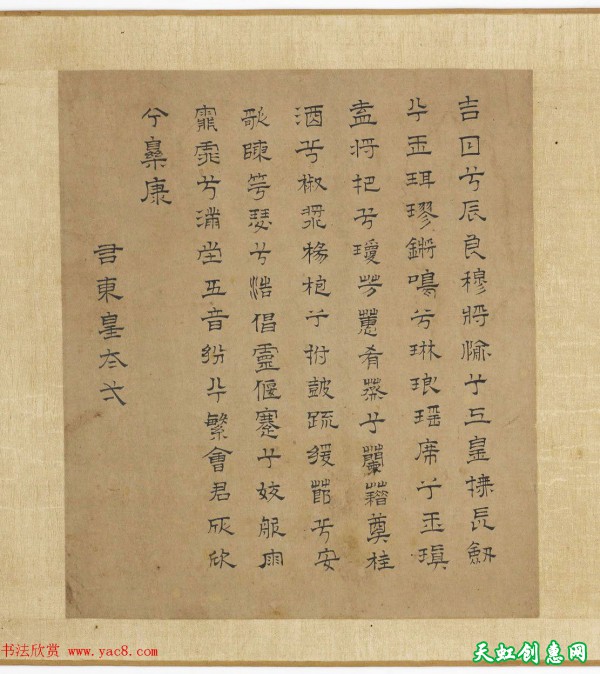 吉日兮辰良穆將愉兮上皇撫長劒
兮玉珥璆鏘鳴兮琳琅瑤席兮玉瑱
盍將把兮瓊芳蕙肴蒸兮蘭藉奠桂
酒兮椒漿揚枹兮拊鼓疏緩節兮安
歌陳竽瑟兮浩倡靈偃蹇兮姣服雨
霏霏兮滿堂五音紛兮繁會君欣欣
兮樂康
東皇太弌
书法欣赏 www.yac8.com
天虹创惠网